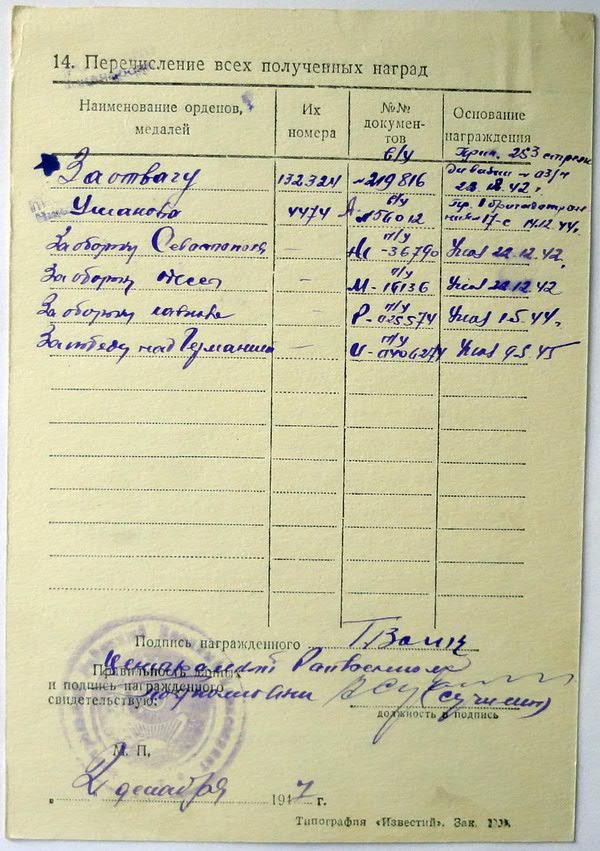 14. Перечисление всех полученных наград
Наименование орденов, медалей
Их номера
№№ документов
Основание награждения
За отвагу 132324 б/у №219816 Прик. 253 стрелк. дивизии № 03/н 22.2.42 г.
Ушакова 4474 б/у А №156012 14.12.44 г.
За оборону Севастополя — п/у -36790 Указ 22.12.42 г.
За оборону Одессы — п/у М-16136 Указ 22.12.42
За оборону Кавказа - п/у Р-025574 Указ 1.5.44 г.
За победу над Германией — п/у Указ 9.5.45
Подпись награжденного
Правильность данных
и подпись награжденного
свидетельствую:
должность и подпись
М. П.
„2 декабря 1947 г.
Типография «Известий». Зак.